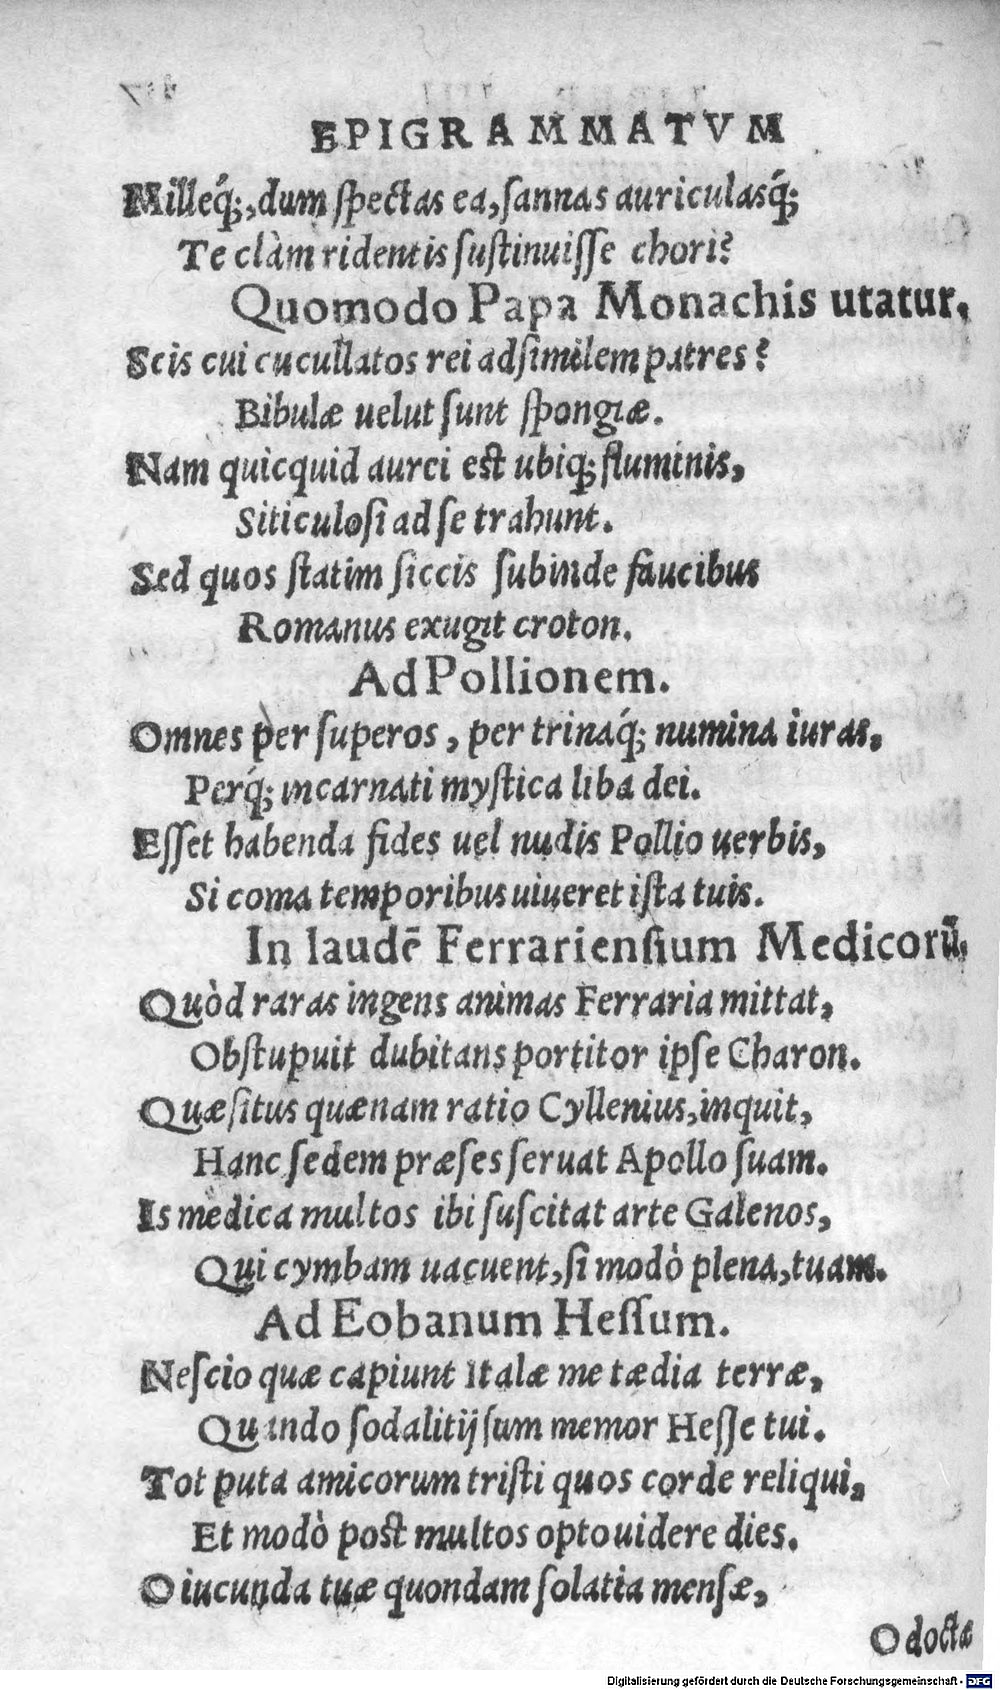 EPIGRAMMATVM
Milleq́;, dum ſpectas ea, ſannas auriculasq́;
Te clàm ridentis ſuſtinuiſſe chori?
Quomodo Papa Monachis utatur.
Scis cui cucullatos rei adſimilem patres?
Bibulæ uelut ſunt ſpongiæ.
Nam quicquid aurei eſt ubiq; fluminis,
Siticuloſi ad ſe trahunt.
Sed quos ſtatim ſiccis ſubinde faucibus
Romanus exugit croton.
Ad Pollionem.
Omnes per ſuperos, per trinaq́; numina iuras,
Perq́; incarnati myſtica liba dei.
Eſſet habenda fides uel nudis Pollio uerbis,
Si coma temporibus uiueret iſta tuis.
In laudē Ferrarienſium Medicorū.
Quòd raras ingens animas Ferraria mittat,
Obſtupuit dubitans portitor ipſe Charon.
Quæſitus quænam ratio Cyllenius, inquit,
Hanc ſedem præſes ſeruat Apollo ſuam.
Is medica multos ibi ſuſcitat arte Galenos,
Qui cymbam uacuent, ſi modò plena, tuam.
Ad Eobanum Heſſum.
Neſcio quæ capiunt Italæ me tædia terræ,
Quando ſodalitij ſum memor Heſſe tui.
Tot puta amicorum triſti quos corde reliqui,
Et modò poſt multos opto uidere dies.
O iucunda tuæ quondam ſolatia menſæ,
O doctæ
Digitalisierung gefördert durch die Deutsche Forschungsgemeinschaft - DFG